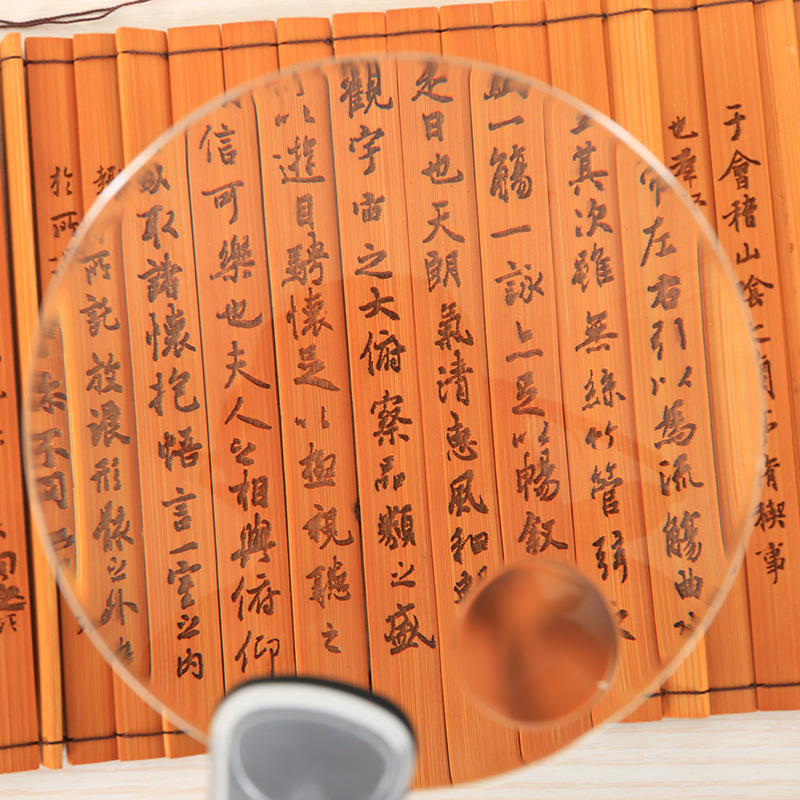 于會稽山陰之蘭亭脩禊事
也群
帶左右引以為流觴曲水
其次雖無絲竹管弦之
一觴一詠亦足以暢叙
是日也天朗氣清惠風和
觀宇宙之大俯察品類之盛
所以遊目騁懷足以極視聽之
信可樂也夫人之相與俯仰
取諸懷抱悟言一室之內
所託放浪形骸之外
不同
於所